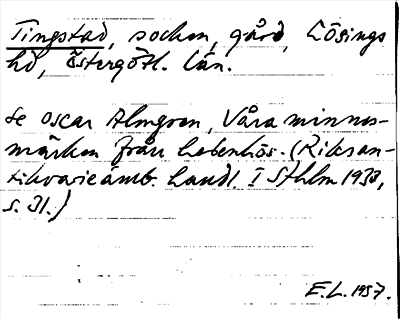 Tingstad, socken, gård, Lösings
hd, Östergötl. län.
Se Oscar Almgren, Våra minnes-
märken från hedenhös. (Riksan-
tikvarieämb. handl. I Sthlm 1938,
s. 31.)
E.L. 1957.